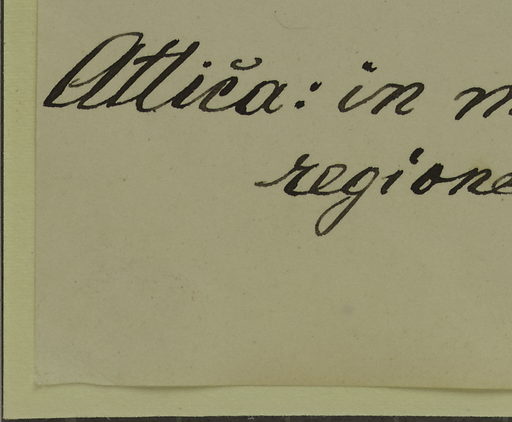 Attica: in m
regione